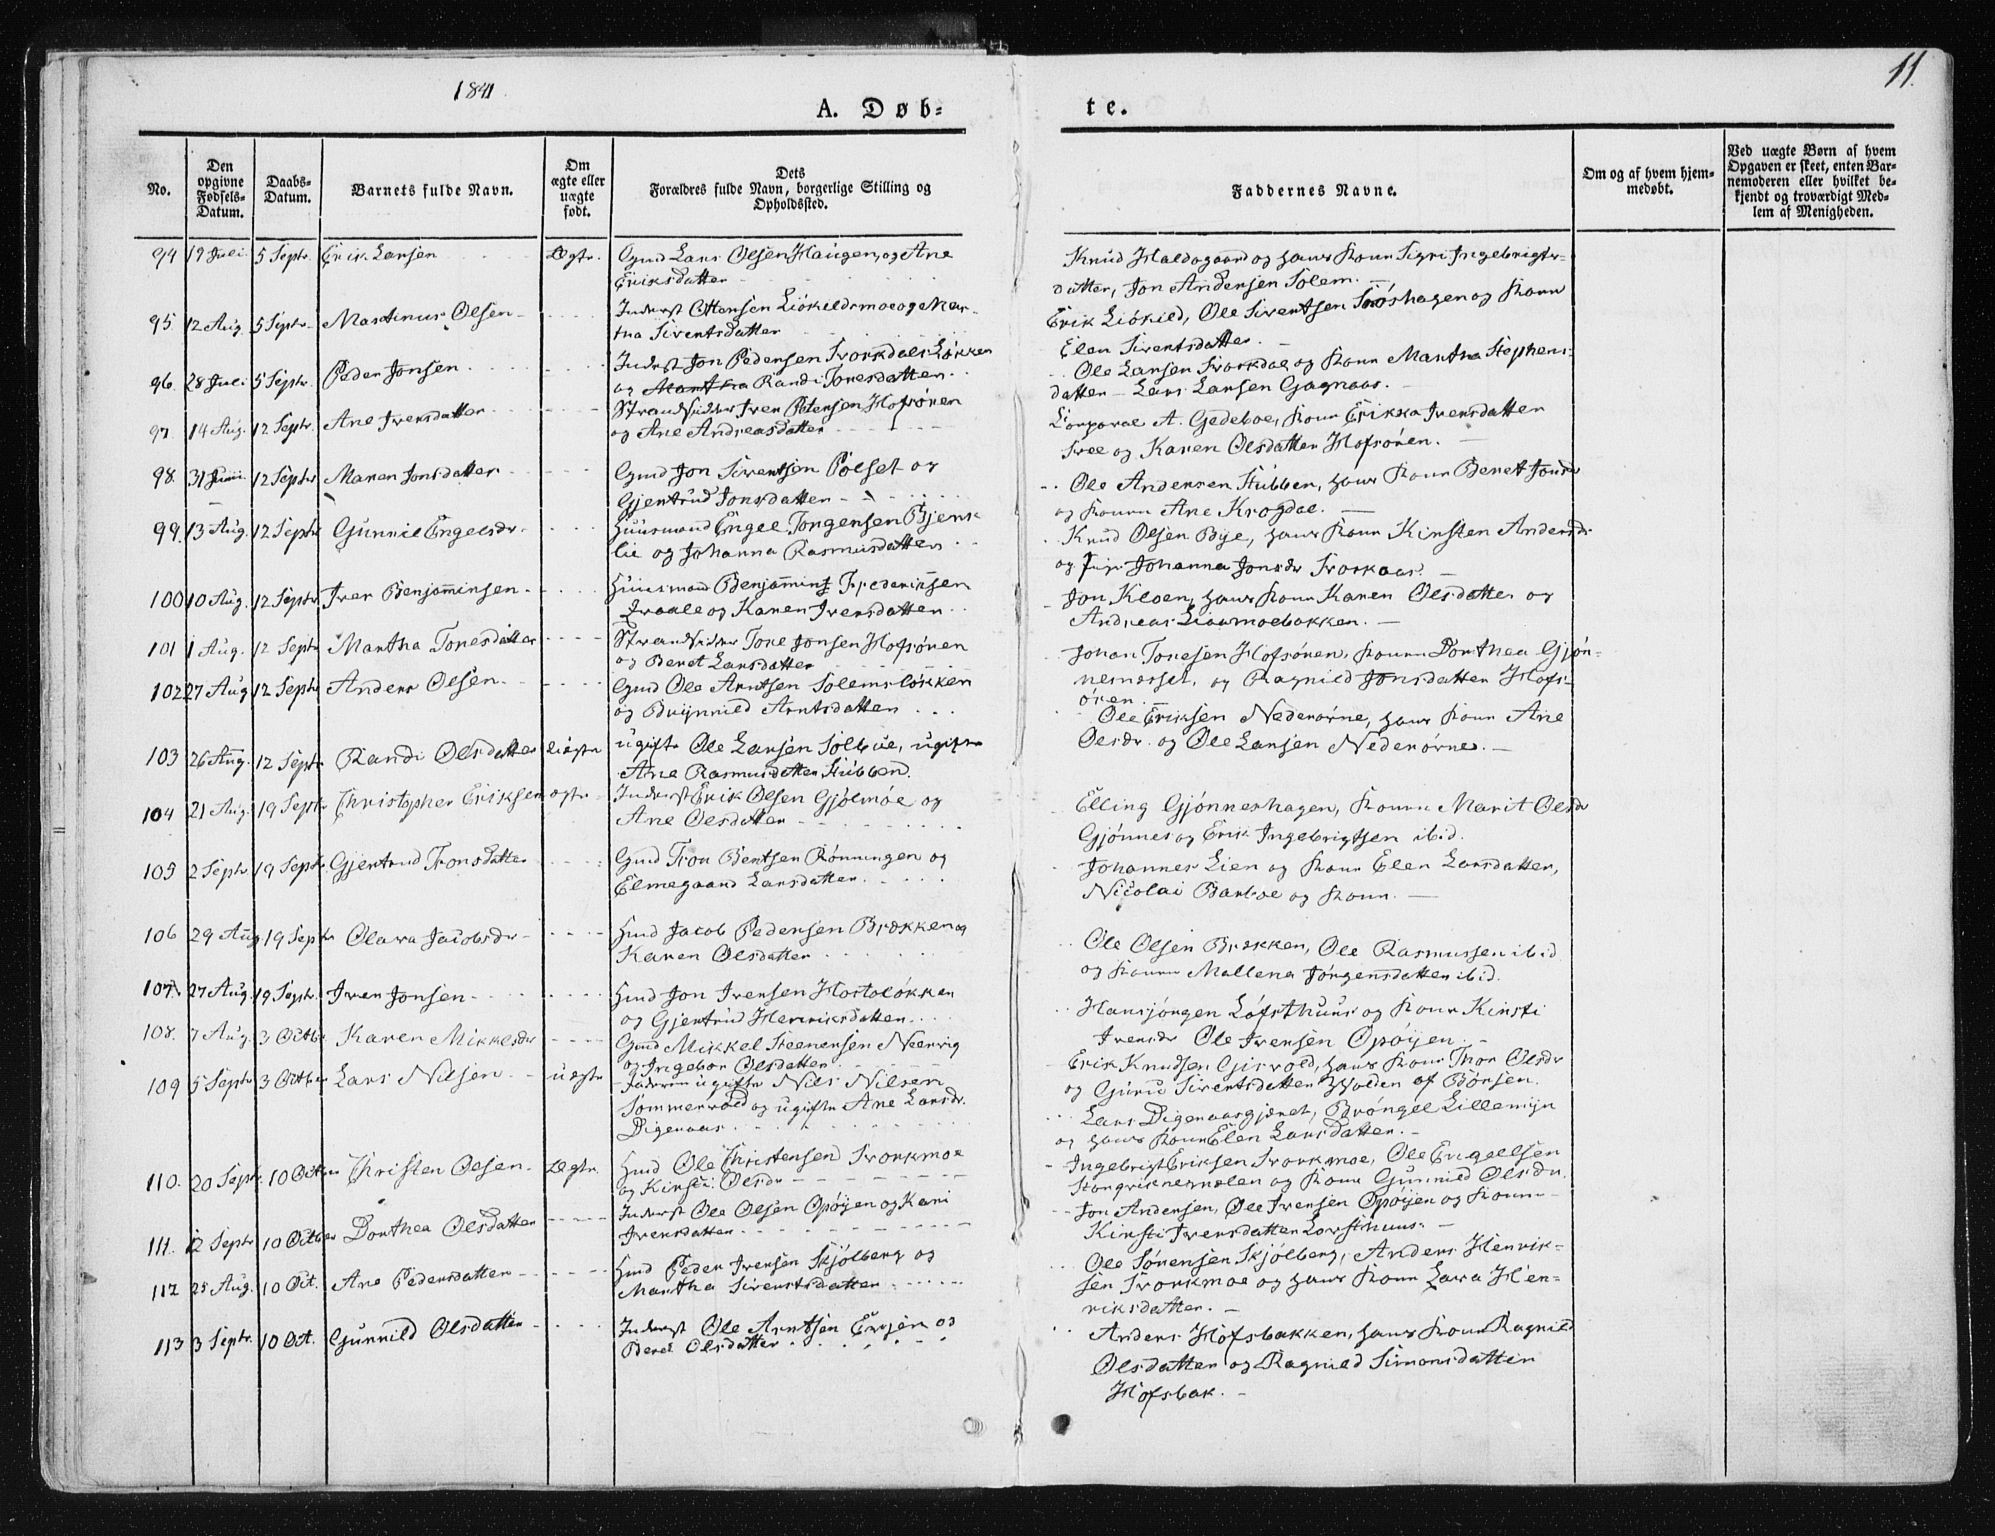 1841
11.
A. Døb-
te.
No.
Den opgivne Fødsels-Datum.
Daabs-Datum.
Barnets fulde Navn.
Om ægte eller uægte født.
Dets
Forældres fulde Navn, borgerlige Stilling og
Opholdssted.
Faddernes Navne.
Om og af hvem hjem-
medøbt.
Ved uægte Børn af hvem
Opgaven er skeet, enten Bar-
nemoderen eller hvilket be-
kjendt og troværdigt Med-
lem af Menigheden.
94 19 Juli 5 Septr. Erik Larsen Ægte. Gmd Lars Olsen Haugen, og Ane
Eriksdatter
Knud Haldogaard og hans Kone Sigri Ingebrigts-
datter, Jon Andersen Solem.
95 12 Aug. 5 Septr. Martinus Olsen
tha Sivertsdatter
Elen Sivertsdatter.
96. 28 Juli 5 Septr. Peder Jonsen Inderst Jon Pedersen Svorkdals Løkken
og Martha Randi Tonesdatter
Ole Larsen Svorkdal og Kone Martha Stephens-
datter - Lars Larsen Gagnaas.
97. 14 Aug. 12 Septr. Ane Iversdatter Strandsidder Iver Petersen Hofsøren
og Ane Andreasdatter
Corporal A. Gedeboe, Kone Erikka Iversdatter
og Karen Olsdatter Hofsøren.
98. 31 12 Septr Maren Jonsdatter Gmd Jon Sivertsen Polset og
Gjertrud Jonsdatter
Ole Andersen Stubben, hans Kone Beret Jonsdr
og Kone Ane Krogdal.
99. 13 Aug. 12 Septr Gunnil Engelsdr. Huusmand Engel Jørgensen Bjerk
lie og Johanna Rasmusdatter
Knud Olsen Bye, hans Kone Kirsten Andersdr
og Pige Johanna Jonsdr Svorkaas.
100 10 Aug. 12 Septr. Iver Benjaminsen Huusmand Benjamin Frederiksen
og Karen Iversdatter
Jon Kloen, hans Kone Karen Olsdatter og
Andreas Lioamoebakken.
101 1 Aug. 12 Septr Martha Tonesdatter Strandsidder Tone Jonsen Hofsøren
og Beret Larsdatter
Johan Tonesen Hofsøren, Kone Dorthea Gjøn-
nesnesset, og Ragnild Jonsdatter Hofs-
øren.
102 27 Aug 12 Septr Anders Olsen Gmd Ole Arntsen Solemsløkken
og Brynnild Arntsdatter
Ole Eriksen Nederørne, hans Kone Ane
Olsdr. og Ole Larsen Nederørne.
103 26 Aug. 12 Septr Randi Olsdatter Uægte ugifte Ole Larsen Solbue, ugifte
Ane Rasmusdatter Stubben.
104 21 Aug. 19 Septr Christopher Eriksen ægte Inderst Erik Olsen Gjølmøe og
Ane Olsdatter
Elling Gjønneshagen, Kone Marit Olsdr
Gjønnes og Erik Ingebrigtsen ibid.
105 2 Septr. 19 Septr Gjertrud Tronsdatter Gmd Tron Bentsen Rønningen og
Elmegaard Larsdatter
Johannes Lien og Kone Elen Larsdatter,
Nicolai Barboe og Kone.
106 29 Aug 19 Septr Olava Jacobsdr Hmd Jacob Pedersen Brækken og
Karen Olsdatter
Ole Olsen Brækken, Ole Rasmussen ibid
og Kone Mallena Jørgensdatter ibid.
107 27 Aug. 19 Septr. Iver Jonsen Hmd Jon Iversen Hostoløkken
og Gjertrud Henriksdatter
Hansjørgen Løfsthuus og Kone Kirsti
Iversdr Ole Iversen Opøyen
108. 7 Aug. 3 Octbr Karen Mikkelsdr Gmd Mikkel Steenersen Neervig
og Ingebor Olsdatter
Erik Knudsen Gisvold, hans Kone Thor Olsdr
og Guru Sivertsdatter Wolden af Børsen.
109 5 Septr 3 Octber Lars Nilsen uægte ugifte Nils Nilsen
Sommervold og ugifte Ane Larsdr.
Digeraas
Lars Digeraasgjæret, Brøngel Lillemyr
og hans Kone Elen Larsdatter.
110. 20 Septr. 10 Octbr Christen Olsen Ægte. Hmd Ole Christensen Svorkmoe
og Kirsti Olsdr
Ingebrigt Eriksen Svorkmoe, Ole Engelsen
og Kone Gunnild Olsdr.
111. 12 Septr 10 Octber Dorthea Olsdatter Inderst Ole Olsen Opøyen og Kari
Iversdatter
Jon Andersen, Ole Iversen Opøyen og Kone
Kirsti Iversdatter Løvsthuus.
112 25 Aug. 10 Oct. Ane Pedersdatter Hmd Peder Iversen Skjølberg og
Martha Sivertsdatter
Ole Sørensen Skjølberg, Anders Henrik-
sen Svorkmoe og hans Kone Lava Hen-
riksdatter.
113 3 Septr. 10 Oct. Gunnild Olsdatter Inderst Ole Arntsen Evjen og
Beret Olsdatter
Anders Hofsbakken, hans Kone Ragnild
Olsdatter og Ragnild Simonsdatter
Hofsbak.